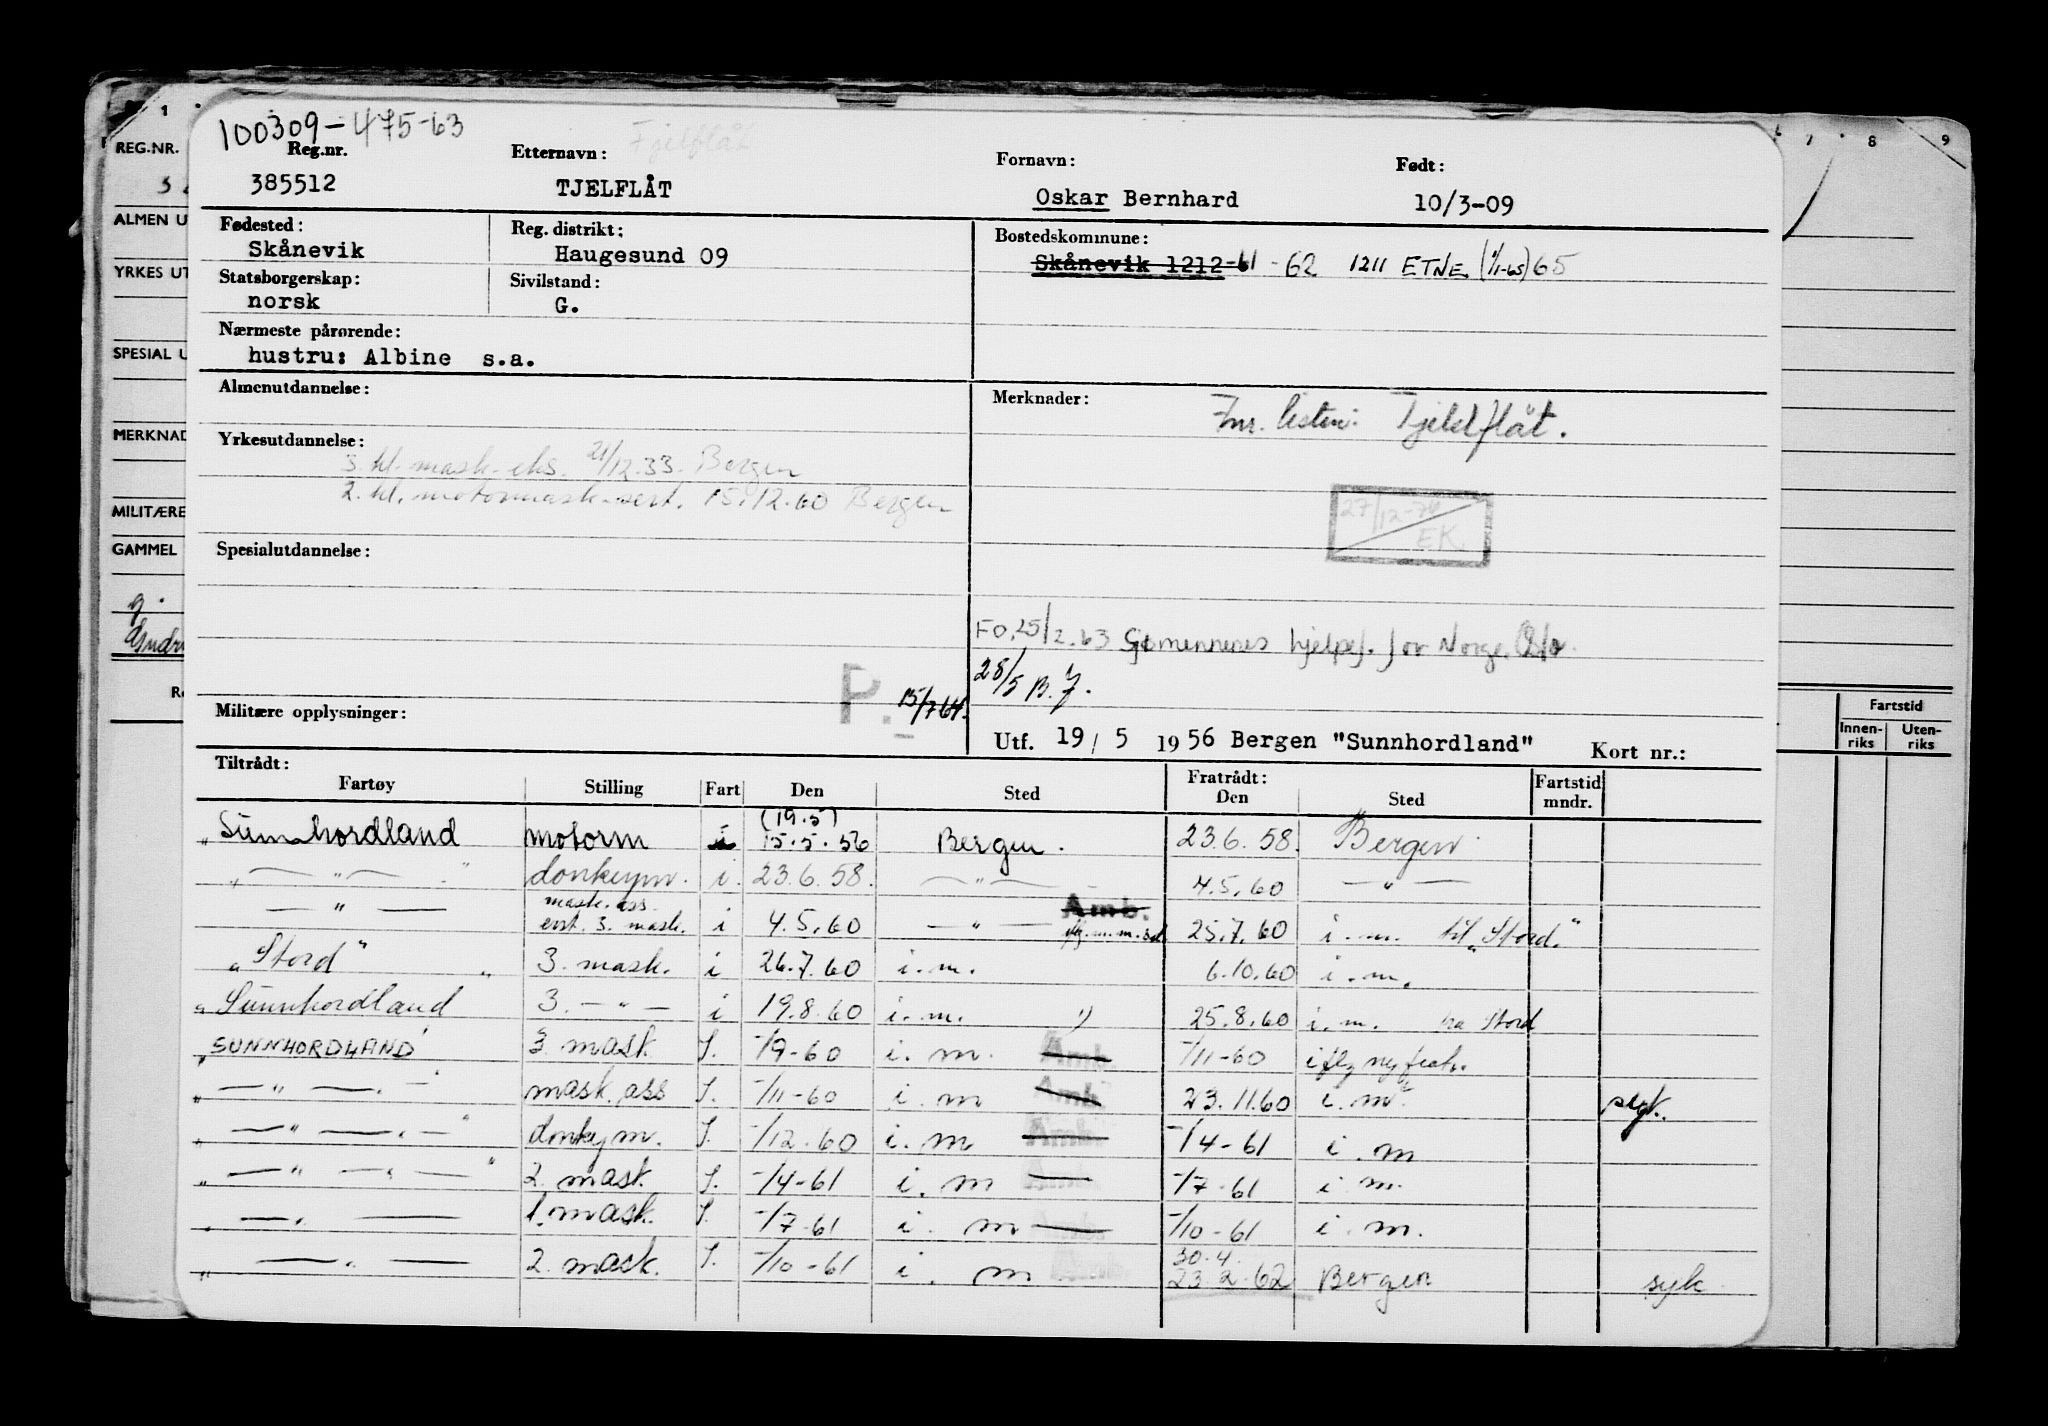 100309-475-63
Fjelflåt
Reg.nr. Etternavn: Fornavn: Født:
385512 TJELFLÅT Oskar Bernhard 10/3-09
Fødested: Reg. distrikt: Bostedskommune:
Skånevik Haugesund 09 Skånevik 1212-61 -62 1211 ETNE (1/1-65) 65
Statsborgerskap: Sivilstand:
norsk G.
Nærmeste pårørende:
hustru: Albine s.a.
Almenutdannelse: Merknader:
Fnr. listen: Tjeldflåt.
Yrkesutdannelse:
3. kl. mask.eks. 21/12.33. Bergen
2. kl. motormask.sert. 15.12.60 Bergen
27/12-70 EK.
Spesialutdannelse:
FO.25/2.63 Sjømennenes hjelpef. for Norge. Oslo.
28/5 B.J.
P. 15/7 64.
Militære opplysninger:
Utf. 19/ 5 19 56 Bergen "Sunnhordland" Kort nr.:
Tiltrådt: Fratrådt:
Fartøy Stilling Fart Den Sted Den Sted Fartstid mndr.
(19.5)
„Sunnhordland motorm i 15.5.56 Bergen. 23.6.58. Bergen
„ — „ — " donkeym. i. 23.6.58. — „ — 4.5.60 — „ —
mask. ass. Amb.
— „ — evt. 3. mask. i 4.5.60 — „ — 25.7.60 i.m. til „Stord."
„Stord" „ 3. mask. i 26.7.60 i.m. 6.10.60 i.m.
„Sunnhordland 3. — „ — i 19.8.60 i.m. 25.8.60 i.m. fra Stord
„SUNNHORDLAND' 3. mask I. -/9-60 i.m. Amb. -/11-60
„ — „ — mask. ass I. -/11-60 i.m Amb. 23.11.60 i.m.
„ — „ — " donkeym. I. -/12-60 i.m Amb. -/4-61 i.m
„ — „ — " 2. mask. I. -/4-61 i.m Amb. -/7-61 i.m.
„ — „ — 1. mask. I. -/7-61 i.m Amb. -/10-61 i.m.
30.4.
„ — „ — 2. mask. I. -/10-61 i.m 23.2.62 Bergen syk
1 7 8 9
REG.NR.
ALMEN U
YRKES UT
SPESIAL U
MERKNAD
MILITÆRE
GAMMEL
g.
Gudr
Fartstid
Innen-riks Uten-riks